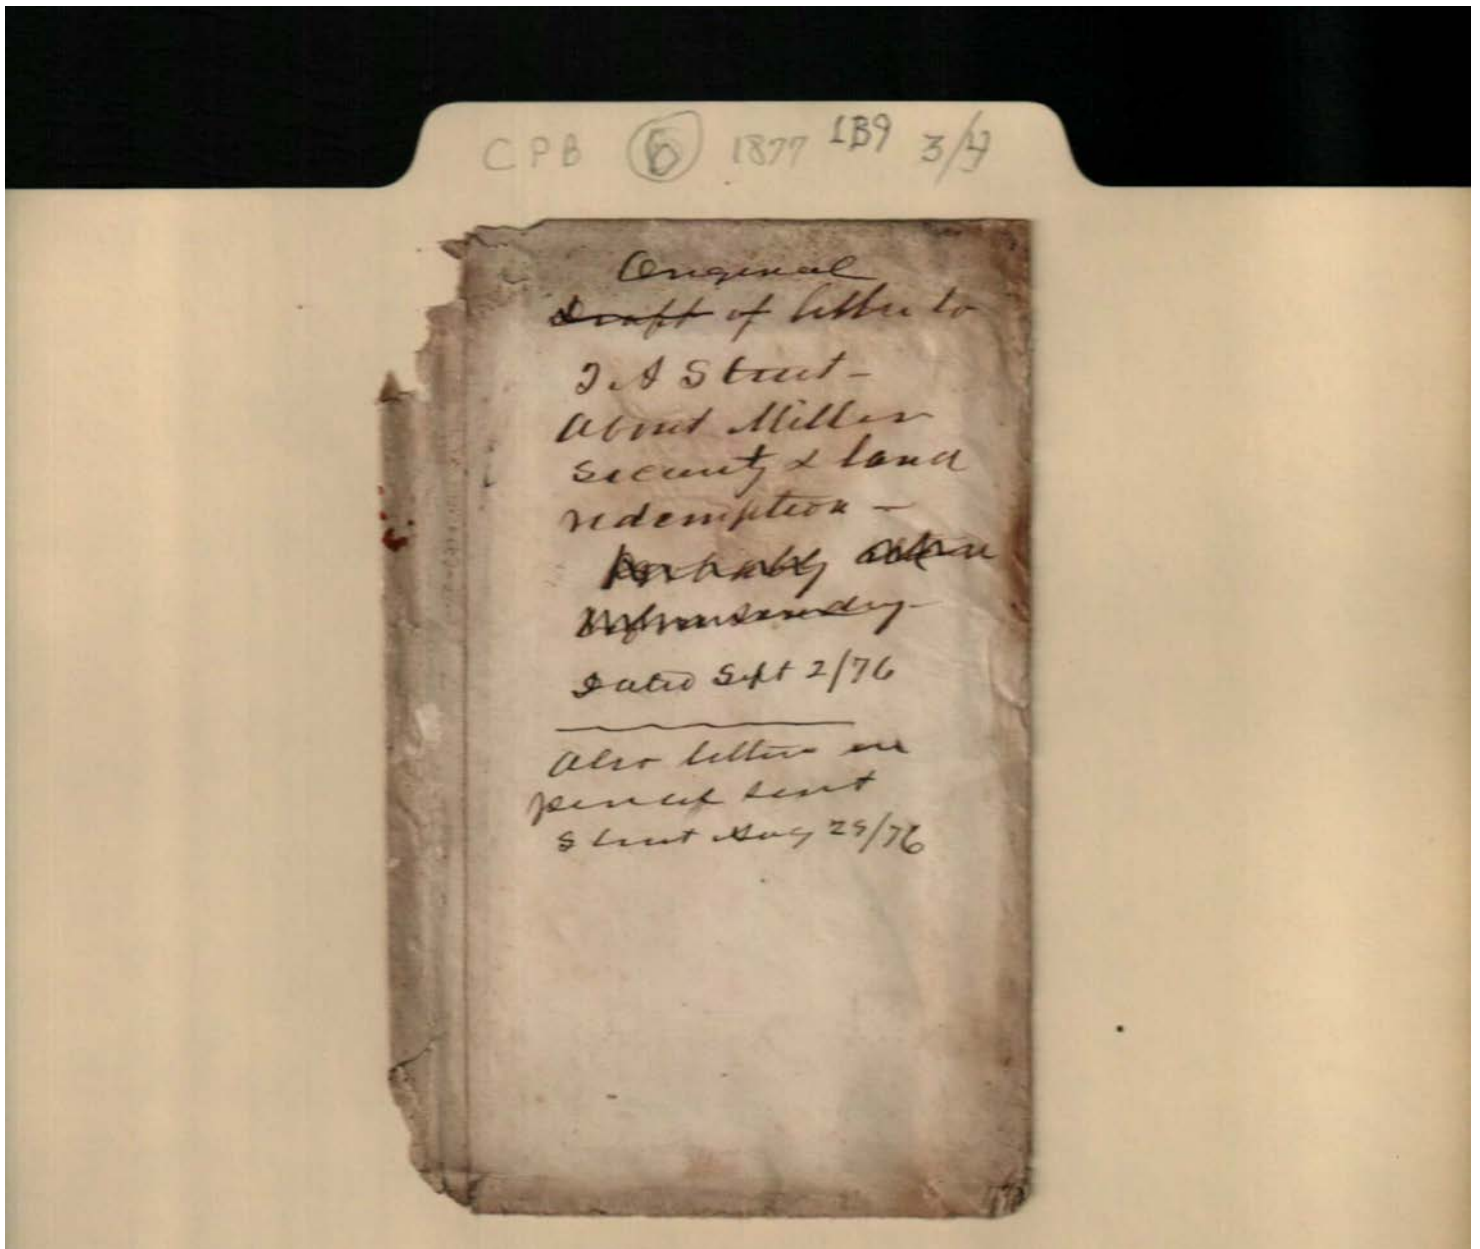 CPB 6 1877 1B9 3/4
Original
Draft of letter to
T. A Strut -
About Miller
Security & land
redemption -
Probably
Dated Sept 2/76
Also letter in
pencil sent
Strut Aug 25/76